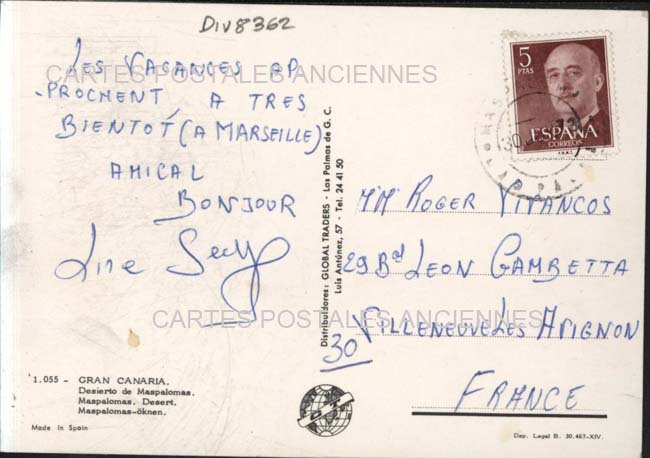 DIV8362
LES VACANCES AP
-PROCHENT, A TRES
BIENTOT (A MARSEILLE)
AMICAL
BONJOUR
CARTES POSTALES ANCIENNES
5
PTAS
ESPAÑA
CORREOS
F.N.M.T.
Distribuidores: GLOBAL TRADERS - Las Palmas de G. C.
Luis Antúnez, 57 - Tel. 24 41 50
MR ROGER VIVANCOS
29 Bd LEON GAMBETTA
VILLENEUVE LES AVIGNON
30
FRANCE
CARTES POSTALES ANCIENNES
1.055 - GRAN CANARIA.
Desierto de Maspalomas.
Maspalomas. Desert.
Maspalomas-öknen.
Made in Spain
Dep. Legal B. 30.467-XIV.